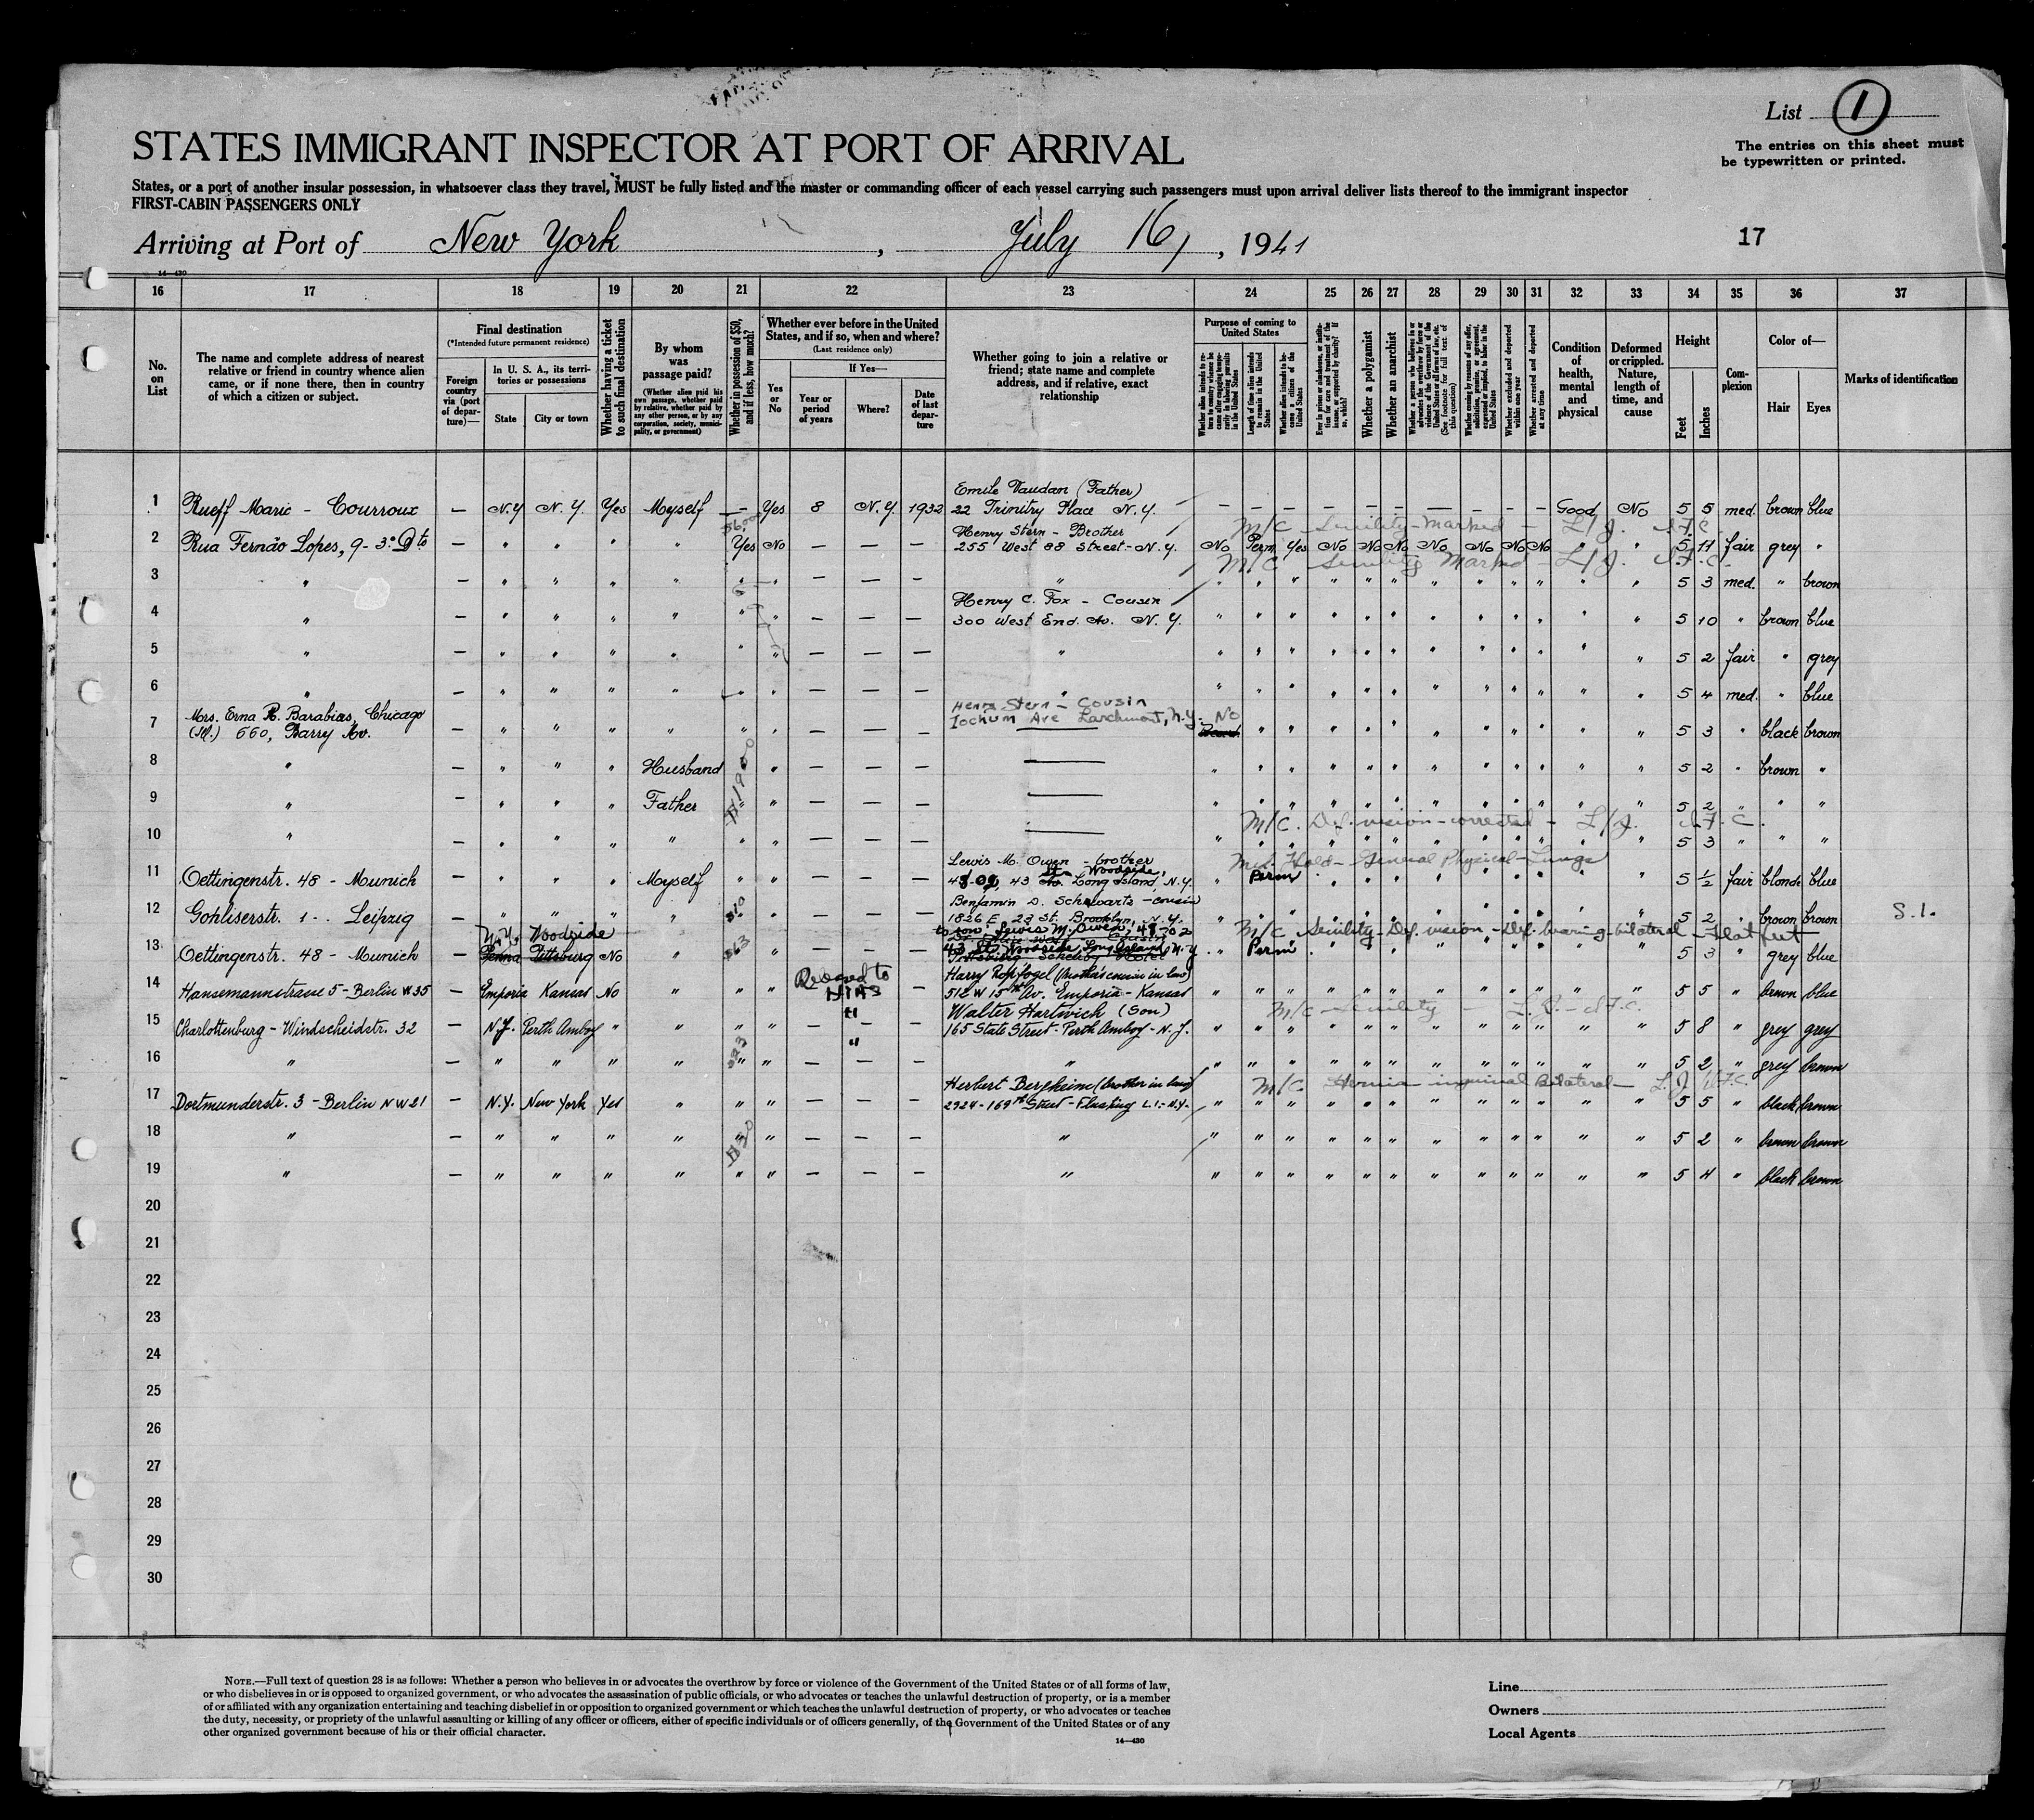 List 1
The entries on this sheet must
be typewritten or printed.
STATES IMMIGRANT INSPECTOR AT PORT OF ARRIVAL
States, or a port of another insular possession, in whatsoever class they travel, MUST be fully listed and the master or commanding officer of each vessel carrying such passengers must upon arrival deliver lists thereof to the immigrant inspector
FIRST-CABIN PASSENGERS ONLY
Arriving at Port of New York, July 16, 1941
17
14—430
16 17 18 19 20 21 22 23 24 25 26 27 28 29 30 31 32 33 34 35 36 37
No. on List
The name and complete address of nearest relative or friend in country whence alien came, or if none there, then in country of which a citizen or subject.
Final destination
(*Intended future permanent residence)
Foreign country via (port of departure)—
In U. S. A., its territories or possessions
State
City or town
Whether having a ticket to such final destination
By whom was passage paid?
(Whether alien paid his own passage, whether paid by relative, whether paid by any other person, or by any corporation, society, municipality, or government)
Whether in possession of $50, and if less, how much?
Whether ever before in the United States, and if so, when and where?
(Last residence only)
Yes or No
If Yes—
Year or period of years
Where?
Date of last departure
Whether going to join a relative or friend; state name and complete address, and if relative, exact relationship
Purpose of coming to United States
Length of time alien intends to remain in the United States
Whether alien intends to become a citizen of the United States
Whether a polygamist
Whether an anarchist
Whether excluded and deported within one year
Whether arrested and deported at any time
Condition of health, mental and physical
Deformed or crippled. Nature, length of time, and cause
Height
Feet
Inches
Complexion
Color of—
Hair
Eyes
Marks of identification
Emile Vaudan (Father)
1 Rueff Marie - Courroux — N.Y N.Y. Yes Myself — Yes 8 N.Y. 1932 22 Trinitry Place N.Y. — — — — — — — — — — Good No 5 5 med. brown blue
M/C Senility - Marked - L/J.
Henry Stern - Brother
2 Rua Fernão Lopes, 9 - 3º Dto — " " " " Yes No — — — 255 West 88 Street - N.Y. No Perm Yes No No No No No No No " " 5 11 fair grey "
M/C Senility Marked - L/J.
3 " — " " " " " " — — — " " " " " " " " " " " " " 5 3 med. " brown
Henry C. Fox - Cousin
4 " — " " " " " " — — — 300 West End. Av. N.Y. " " " " " " " " " " " " 5 10 " brown blue
5 " — " " " " " " — — — " " " " " " " " " " " " " 5 2 fair " grey
6 " — " " " " " " — — — " " " " " " " " " " " " " 5 4 med. " blue
Mrs. Erna R. Barabias, Chicago
Henry Stern - Cousin
Iochum Ave Larchmont, N.Y. No
7 (Ill.) 660, Barry Av. — " " " " " " — — — " " " " " " " " " " " 5 3 " black brown
8 " — " " " Husband " " — — — — " " " " " " " " " " " " 5 2 " brown "
$1900
9 " — " " " Father " " — — — — " " " " " " " " " " " " 5 2 " " "
M/C. Def. vision - corrected - L/J.
10 " — " " " " " " — — — — " " " " " " " " " " " " 5 3 " " "
Lewis M. Owen - brother
Hold - General Physical - Lungs
Woodside,
11 Oettingenstr. 48 - Munich — " " " Myself " " — — — 48-02, 43 St. Long Island, N.Y. " Perm " " " " " " " " " " 5 ½ fair blonde blue
Benjamin D. Schwartz - cousin
12 Gohliserstr. 1 - Leipzig — " " " " $10 " — — — 1826 E. 23 St. Brooklyn, N.Y. " " " " " " " " " " " " 5 2 " brown brown S.I.
to son: Lewis M. Owen, 48-02
M/C Senility - Def. vision - Def. hearing - bilateral - Flat feet
N.Y. Woodside
43 St, Woodside, Long Island N.Y
13 Oettingenstr. 48 - Munich — Penna Pittsburg No " $63 " — — — " Perm " " " " " " " " " " 5 3 " grey blue
Harry Ropfogel (brother's cousin in law)
14 Hansemannstrasse 5 - Berlin W35 — Emporia Kansas No " " " — HIAS — 512 W 15th Av. Emporia - Kansas " " " " " " " " " " " " 5 5 " brown blue
M/C - Senility
Walter Hartwich (Son)
15 Charlottenburg - Windscheidstr. 32 — N.J. Perth Amboy " " " " — — — 165 State Street - Perth Amboy - N.J. " " " " " " " " " " " " 5 8 " grey grey
16 " — " " " " " " — — — " " " " " " " " " " " " " 5 2 " grey brown
Herbert Bergheim (brother in law)
M/C Hernia inguinal Bilateral - L/J
17 Dortmunderstr. 3 - Berlin NW21 — N.Y. New York Yes " " " — — — 2924 - 169th Street - Flushing L.I. - N.Y. " " " " " " " " " " " " 5 5 " black brown
18 " — " " " " " " — — — " " " " " " " " " " " " " 5 2 " brown brown
$30
19 " — " " " " " " — — — " " " " " " " " " " " " " 5 4 " black brown
20
21
22
23
24
25
26
27
28
29
30
NOTE.—Full text of question 28 is as follows: Whether a person who believes in or advocates the overthrow by force or violence of the Government of the United States or of all forms of law,
or who disbelieves in or is opposed to organized government, or who advocates the assassination of public officials, or who advocates or teaches the unlawful destruction of property, or is a member
of or affiliated with any organization entertaining and teaching disbelief in or opposition to organized government or which teaches the unlawful destruction of property, or who advocates or teaches
the duty, necessity, or propriety of the unlawful assaulting or killing of any officer or officers, either of specific individuals or of officers generally, of the Government of the United States or of any
other organized government because of his or their official character.
14—430
Line
Owners
Local Agents